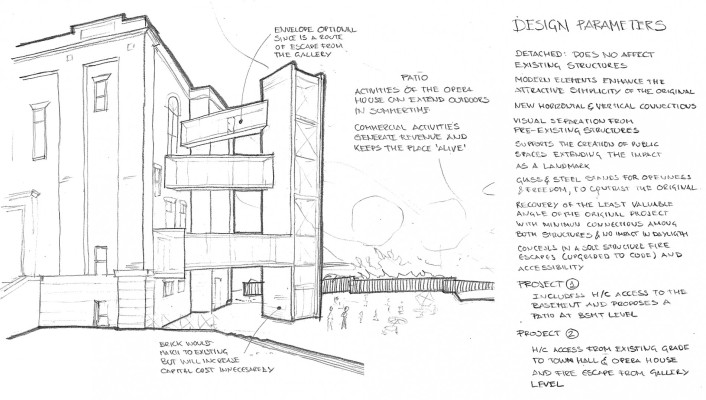 ENVELOPE OPTIONAL
SINCE IS A ROUTE
OF ESCAPE FROM
THE GALLERY
PATIO
ACTIVITIES OF THE OPERA
HOUSE CAN EXTEND OUTDOORS
IN SUMMERTIME
COMMERCIAL ACTIVITIES
GENERATE REVENUE AND
KEEPS THE PLACE 'ALIVE'
BRICK WOULD
MATCH TO EXISTING
BUT WILL INCREASE
CAPITAL COST UNNECESARILY
DESIGN PARAMETERS
DETACHED: DOES NO AFFECT
EXISTING STRUCTURES
MODERN ELEMENTS ENHANCE THE
ATTRACTIVE SIMPLICITY OF THE ORIGINAL
NEW HORIZONTAL & VERTICAL CONNECTIONS
VISUAL SEPARATION FROM
PRE-EXISTING STRUCTURES
SUPPORTS THE CREATION OF PUBLIC
SPACES EXTENDING THE IMPACT
AS A LANDMARK
GLASS & STEEL STANDS FOR OPENNESS
& FREEDOM, TO CONTRAST THE ORIGINAL
RECOVERY OF THE LEAST VALUABLE
ANGLE OF THE ORIGINAL PROJECT
WITH MINIMUM CONNECTIONS AMONG
BOTH STRUCTURES & NO IMPACT IN DAYLIGTH
CONCEALS IN A SOLE STRUCTURE FIRE
ESCAPES (UPGRADED TO CODE) AND
ACCESSIBILITY
PROJECT 1
INCLUDES H/C ACCESS TO THE
BASEMENT AND PROPOSES A
PATIO AT BSMT LEVEL
PROJECT 2
H/C ACCESS FROM EXISTING GRADE
TO TOWN HALL & OPERA HOUSE
AND FIRE ESCAPE FROM GALLERY
LEVEL